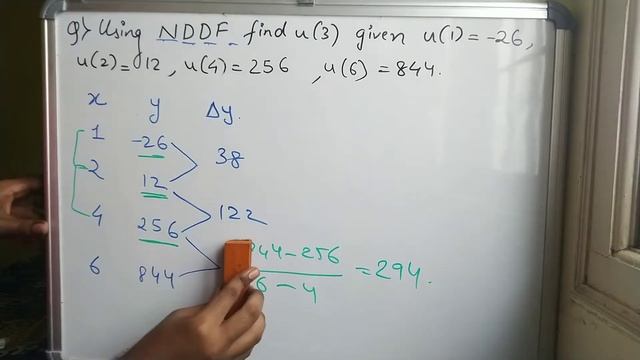 Q) Using NDDF find u(3) given u(1) = -26,
u(2) = 12, u(4) = 256, u(6) = 844.
x y Δy.
1 -26
38
2 12
122
4 256
44-256 / 6-4 = 294.
6 844